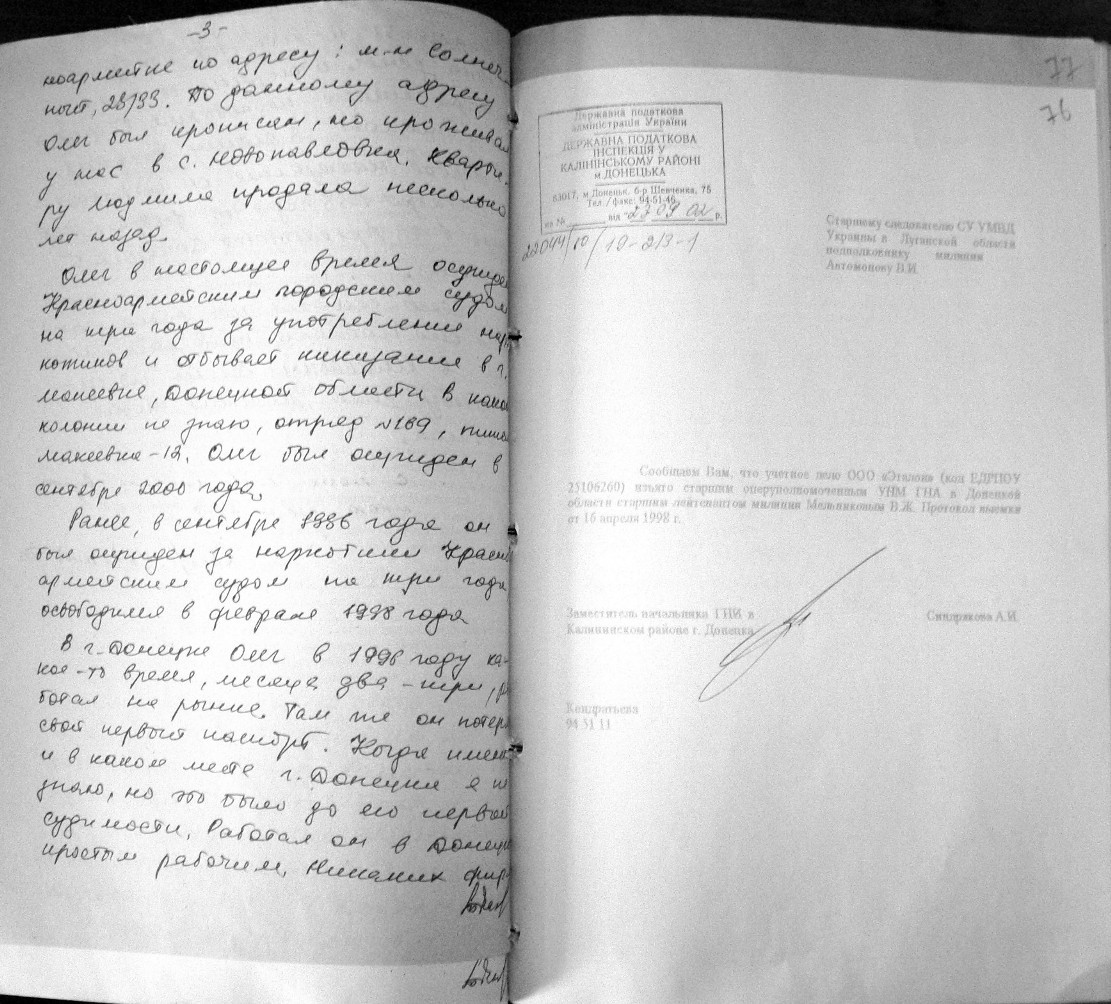 -3-
ноармейске по адресу: м-н Солнеч-
ный, 28/93. По данному адресу
Олег был прописан, но проживал
у нас в с. Новопавловка. Кварти-
ру Людмила продала несколько
лет назад.
Олег в настоящее время осужде
Красноармейским городским судом
на три года за употребление нар
котиков и отбывает наказание в г.
Макеевке, Донецкой области в какой
колонии не знаю, отряд №169,
Макеевка-12. Олег был осужден в
сентябре 2000 года.
Ранее, в сентябре 1996 года он
был осужден за наркотики Красн
армейским судом на три года
освободился в феврале 1998 года
В г. Донецке Олег в 1996 году ка-
кое-то время, месяца два-три, ра
ботал на рынке. Там же он потер
свой первый паспорт. Когда имен
и в каком месте г. Донецка я не
знаю, но это было до его первой
судимости. Работал он в Донец
простым рабочим. Никаких фир
77
76
Державна податкова
адміністрація України
ДЕРЖАВНА ПОДАТКОВА
ІНСПЕКЦІЯ У
КАЛІНІНСЬКОМУ РАЙОНІ
м.ДОНЕЦЬКА
83017, м.Донецьк, б-р Шевченка, 75
Тел./факс: 94-51-46
вх № від 23 09 02 р.
22044/10/19-213-1
Старшему следователю СУ УМВД
Украины в Луганской области
подполковнику милиции
Автомонову В.И.
Сообщаем Вам, что учетное дело ООО «Эталон» (код ЕДРПОУ
25106260) изъято старшим оперуполномоченным УНМ ГНА в Донецкой
области старшим лейтенантом милиции Мельниковым В.Ж. Протокол выемки
от 16 апреля 1998 г.
Заместитель начальника ГНИ в
Калининском районе г. Донецка
Синдрякова А.И.
Кондратьева
94 51 11